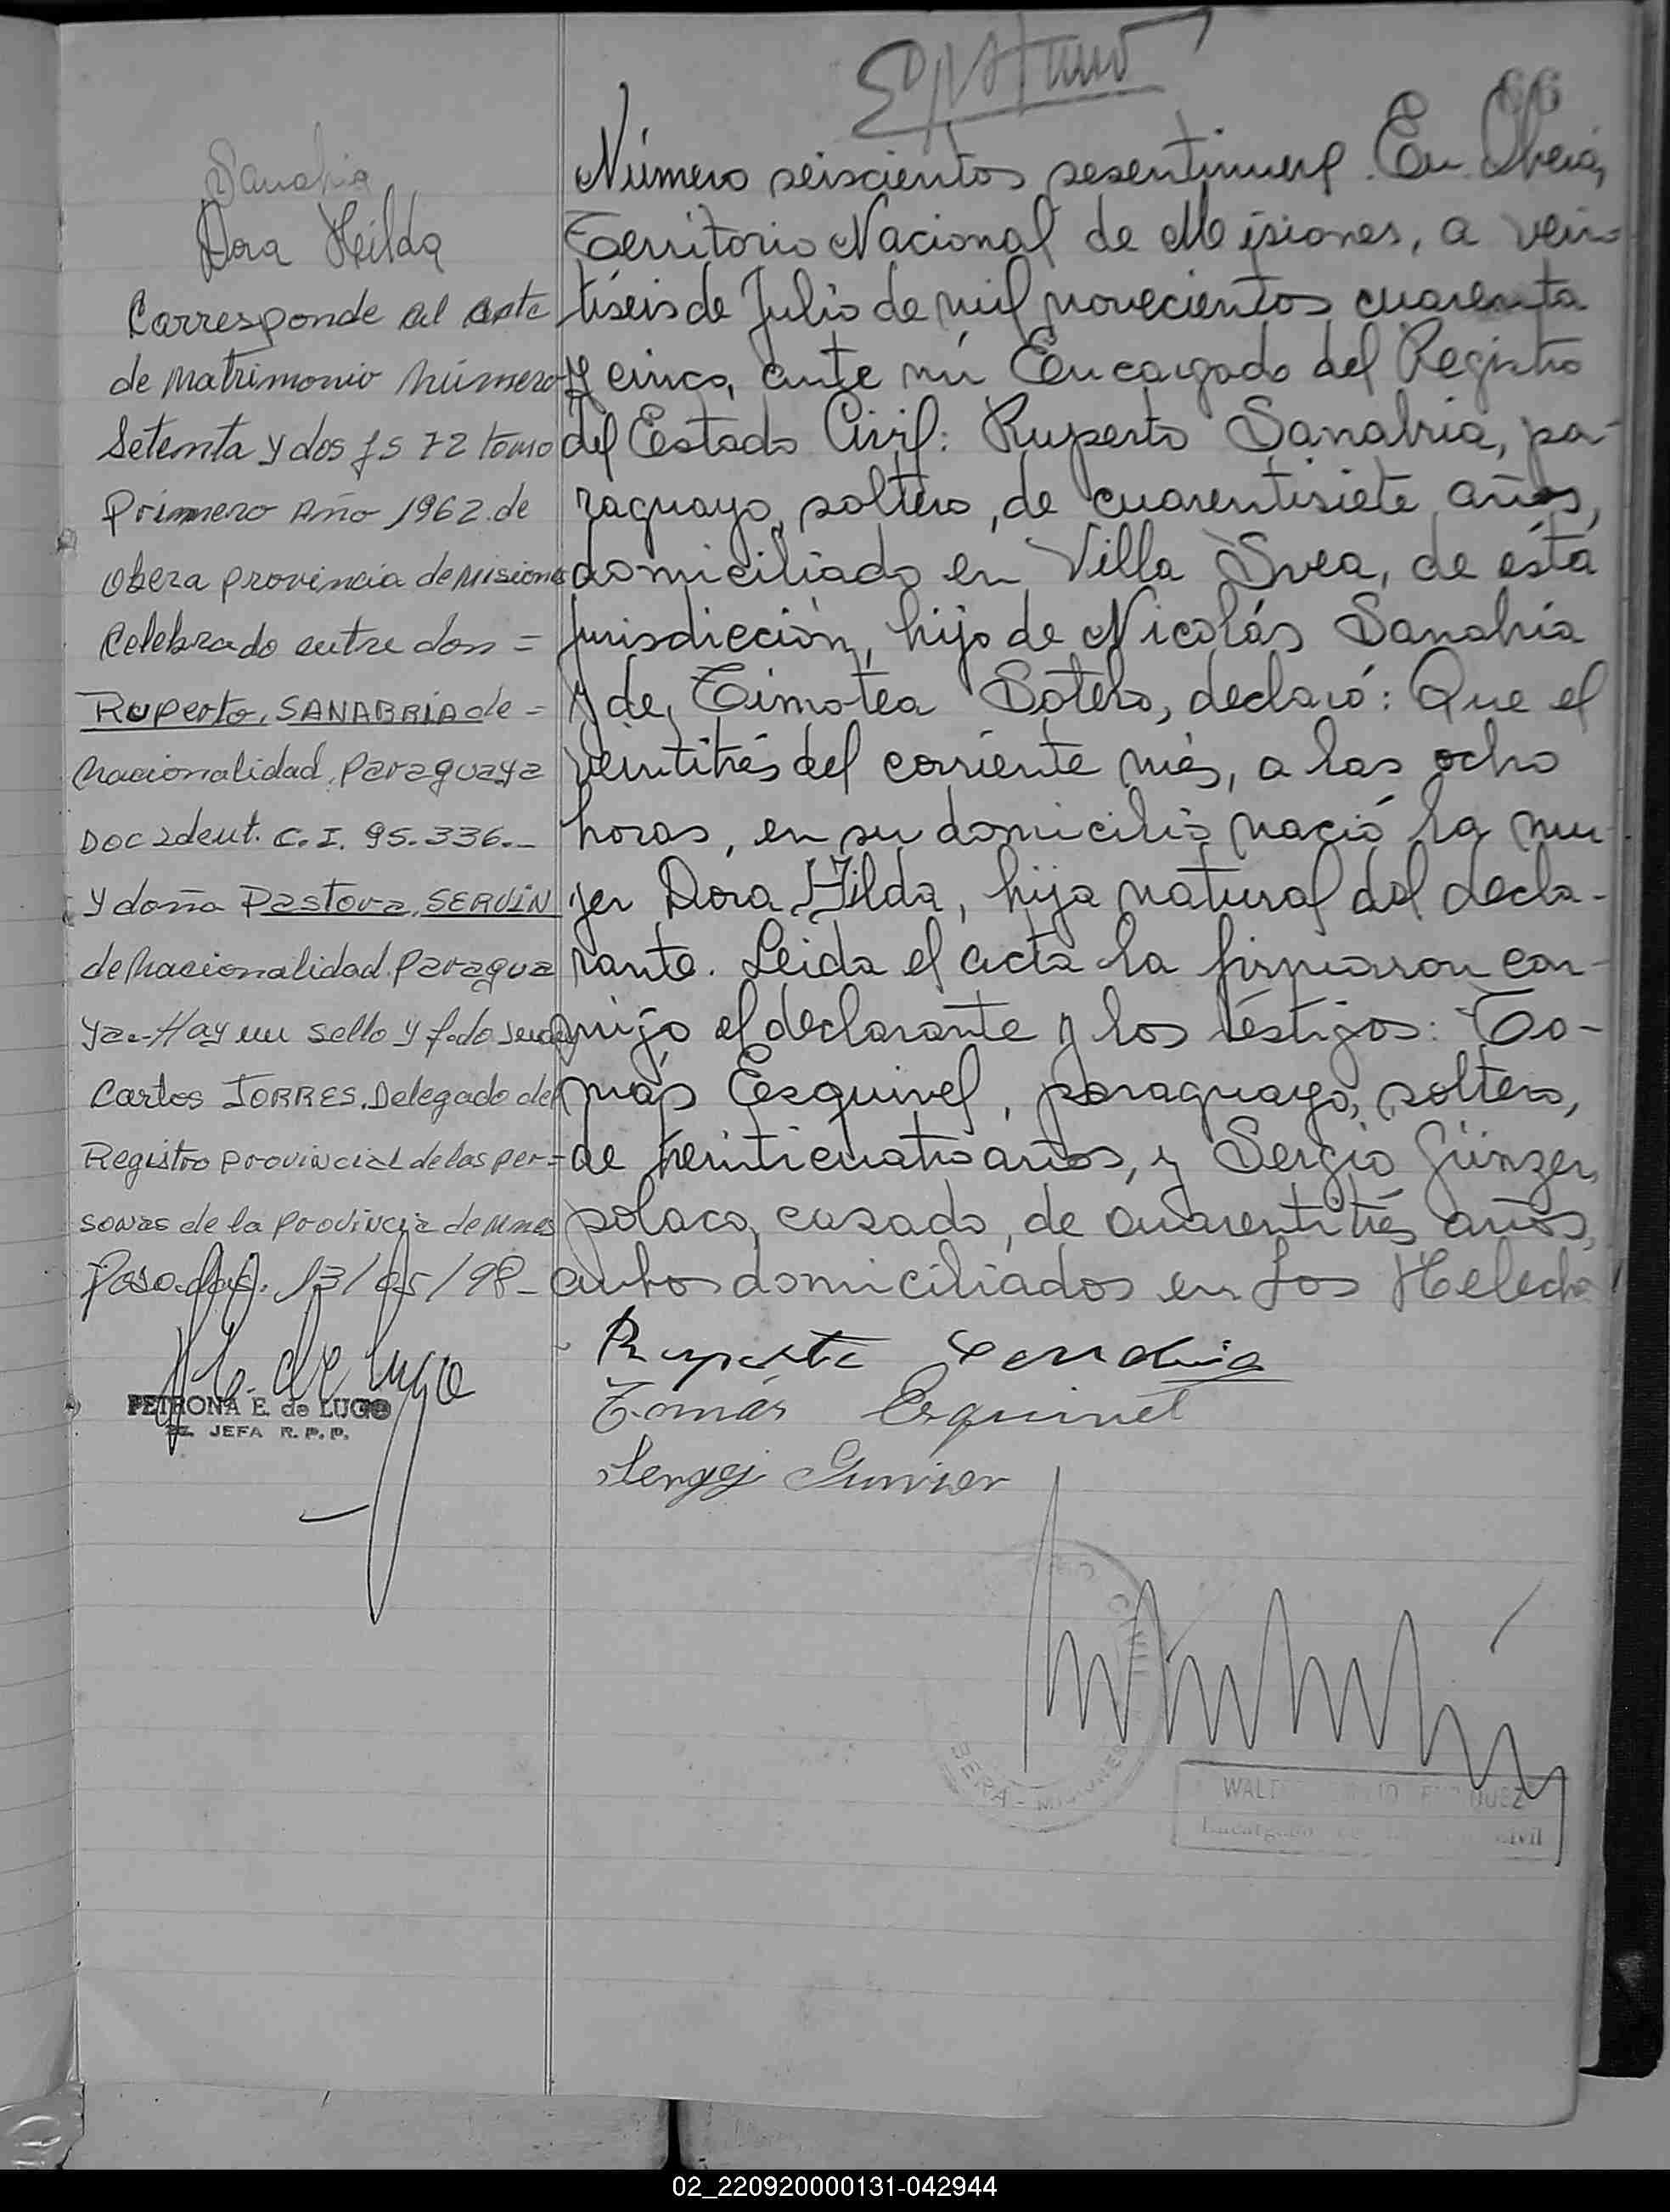 66
Sanabria
Dora Heilda
Corresponde al acta
de matrimonio número
Setenta y dos fs 72 tomo
primero Año 1962. de
Obera provincia de Misiones
Celebrado entre don =
Ruperto, SANABRIA de =
nacionalidad, Paraguaya
Doc Ident. C.I. 95.336._
y doña Pastora, SERVIN
de nacionalidad. Paragua
ya.- Hay un sello y f.do
Carlos TORRES. Delegado del
Registro provincial de las per=
sonas de la provincia de Mnes
Posadas. 13/05/98_
PETRONA E. de LUGO
JEFA R. P. P.
Número seiscientos sesentinueve. En Oberá,
Territorio Nacional de Misiones, a vein-
tiseis de Julio de mil novecientos cuarenta
y cinco, ante mí Encargado del Registro
del Estado Civil: Ruperto Sanabria, pa-
raguayo, soltero, de cuarentisiete años,
domiciliado en Villa Svea, de ésta
jurisdicción, hijo de Nicolás Sanabria
y de Timotea Sotelo, declaró: Que el
veintitrés del corriente més, a las ocho
horas, en su domicilio nació la mu-
jer Dora Hilda, hija natural del decla-
rante. Leida el acta la firmaron con-
migo el declarante y los testigos: To-
más Esquivel, paraguayo, soltero,
de veinticuatro años, y Sergio Günzer,
polaco, casado, de cuarentitrés años,
ambos domiciliados en Los Helechos
Ruperto Sanabria
Tomás Esquivel
CIVIL
OBERA - MISIONES